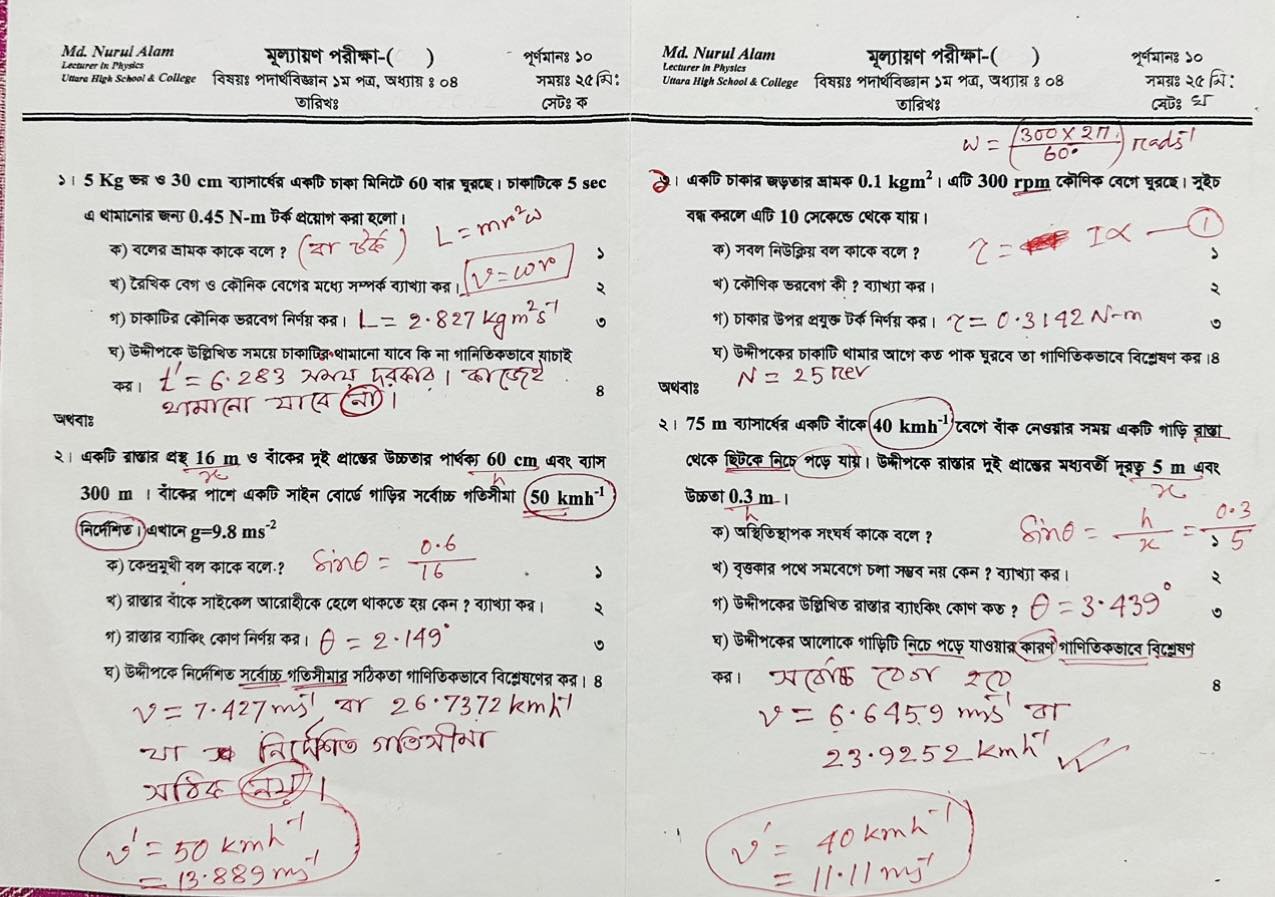 Md. Nurul Alam
Lecturer in Physics
Uttara High School & College
মূল্যায়ণ পরীক্ষা-(      )
বিষয়ঃ পদার্থবিজ্ঞান ১ম পত্র, অধ্যায় ঃ ০৪
তারিখঃ
পূর্ণমানঃ ১০
সময়ঃ ২৫ মি:
সেটঃ ক
১। 5 Kg ভর ও 30 cm ব্যাসার্ধের একটি চাকা মিনিটে 60 বার ঘুরছে। চাকাটিকে 5 sec
এ থামানোর জন্য 0.45 N-m টর্ক প্রয়োগ করা হলো।
L = mr²ω
ক) বলের ভ্রামক কাকে বলে ? (বা টর্ক) ১
খ) রৈখিক বেগ ও কৌনিক বেগের মধ্যে সম্পর্ক ব্যাখ্যা কর। v = ωr ২
গ) চাকাটির কৌনিক ভরবেগ নির্ণয় কর। L = 2.827 kgm²s⁻¹ ৩
ঘ) উদ্দীপকে উল্লিখিত সময়ে চাকাটির থামানো যাবে কি না গানিতিকভাবে যাচাই
কর। t' = 6.283 সময় দরকার। কাজেই ৪
থামানো যাবে না।
অথবাঃ
২। একটি রাস্তার প্রস্থ 16 m ও বাঁকের দুই প্রান্তের উচ্চতার পার্থক্য 60 cm এবং ব্যাস
x h
300 m । বাঁকের পাশে একটি সাইন বোর্ডে গাড়ির সর্বোচ্চ গতিসীমা 50 kmh⁻¹
নির্দেশিত। এখানে g=9.8 ms⁻²
ক) কেন্দ্রমুখী বল কাকে বলে ? Sinθ = 0.6/16 ১
খ) রাস্তার বাঁকে সাইকেল আরোহীকে হেলে থাকতে হয় কেন ? ব্যাখ্যা কর। ২
গ) রাস্তার ব্যাংকিং কোণ নির্ণয় কর। θ = 2.149° ৩
ঘ) উদ্দীপকে নির্দেশিত সর্বোচ্চ গতিসীমার সঠিকতা গাণিতিকভাবে বিশ্লেষণের কর। ৪
v = 7.427 ms⁻¹ বা 26.7372 kmh⁻¹
যা নির্দেশিত গতিসীমা
সঠিক নয়।
v' = 50 kmh⁻¹
= 13.889 ms⁻¹
Md. Nurul Alam
Lecturer in Physics
Uttara High School & College
মূল্যায়ণ পরীক্ষা-(      )
বিষয়ঃ পদার্থবিজ্ঞান ১ম পত্র, অধ্যায় ঃ ০৪
তারিখঃ
পূর্ণমানঃ ১০
সময়ঃ ২৫ মি:
সেটঃ ঘ
ω = (300 × 2π / 60) rads⁻¹
১। একটি চাকার জড়তার ভ্রামক 0.1 kgm²। এটি 300 rpm কৌণিক বেগে ঘুরছে। সুইচ
বন্ধ করলে এটি 10 সেকেন্ডে থেকে যায়।
τ = Iα — 1
ক) সবল নিউক্লিয় বল কাকে বলে ? ১
খ) কৌণিক ভরবেগ কী ? ব্যাখ্যা কর। ২
গ) চাকার উপর প্রযুক্ত টর্ক নির্ণয় কর। τ = 0.3142 N-m ৩
ঘ) উদ্দীপকের চাকাটি থামার আগে কত পাক ঘুরবে তা গাণিতিকভাবে বিশ্লেষণ কর।৪
N = 25 rev
অথবাঃ
২। 75 m ব্যাসার্ধের একটি বাঁকে 40 kmh⁻¹ বেগে বাঁক নেওয়ার সময় একটি গাড়ি রাস্তা
থেকে ছিটকে নিচে পড়ে যায়। উদ্দীপকে রাস্তার দুই প্রান্তের মধ্যবর্তী দূরত্ব 5 m এবং
x
উচ্চতা 0.3 m ।
h
ক) অস্থিতিস্থাপক সংঘর্ষ কাকে বলে ? Sinθ = h/x = 0.3/5 ১
খ) বৃত্তকার পথে সমবেগে চলা সম্ভব নয় কেন ? ব্যাখ্যা কর। ২
গ) উদ্দীপকের উল্লিখিত রাস্তার ব্যাংকিং কোণ কত ? θ = 3.439° ৩
ঘ) উদ্দীপকের আলোকে গাড়িটি নিচে পড়ে যাওয়ার কারণ গাণিতিকভাবে বিশ্লেষণ
কর। সর্বোচ্চ বেগ হবে ৪
v = 6.6459 ms⁻¹ বা
23.9252 kmh⁻¹
v' = 40 kmh⁻¹
= 11.11 ms⁻¹